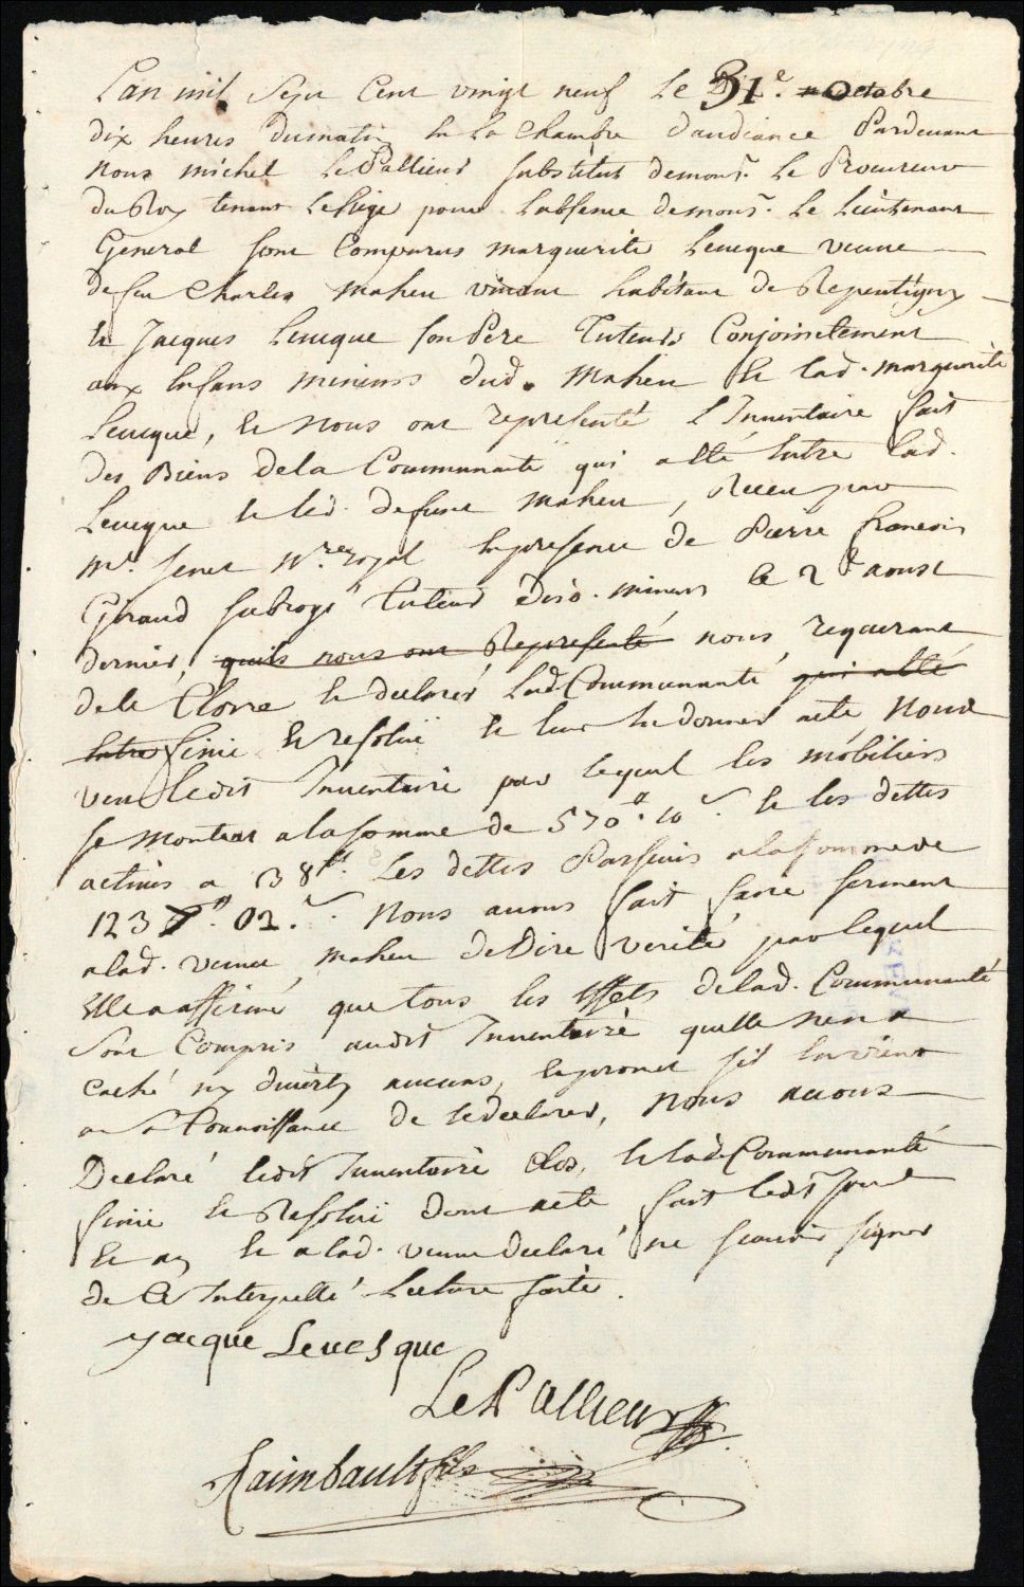 Lan mil Sept Cent vingt neuf Le 31e. Octobre
dix heures dumatin En La Chambre daudiance Pardevant
Nous michel LePallieur substitut demonsr. Le Procureur
du Roy tenant Lesiege pour Labsence demonsr. Le Lieutenant
General sont Comparus marguerite Leuéque veuve
defeu Charles maheu vivant habitant de Repentigny
Et Jacques Leueque sonPere Tuteurs Conjointement
aux Enfans mineurs dud. Maheu Et lad. marguerite
Leueque, Et Nous ont representé L'Inuentaire fait
des Biens dela Communauté qui a Eté Entre lad.
Leueque Et led. defunt maheu, Receu par
Mr. Senet Nre. royal En presence de Pierre francois
Giraud subrogé Tuteur desd. mineurs le 2e aoust
dernier, quils nous ont Representé nous requerant
dele Clorre Et declarer Lad Communauté qui a Eté
Entre finie Et resolüe Et leur En donner acte Nous
veu Ledit Inuentaire par lequel les mobiliers
se montent alasomme de 570lt. 10s. Et les dettes
actives a 38lt. Les dettes Passives alasommede
1237lt. 02s. Nous auons fait faire serment
alad. veuue maheu deDire verité par lequel
Elle a affirmé que tous les Effets delad. Communauté
sont Compris audit Inuentaire quelle nen a
caché ny diverty aucuns, Et promet sil En vient
a sa Connoissance de ledeclarer, Nous auons
Declaré ledit Inuentaire clos, Et lad Communauté
finie Et Resolüe dont acte fait ledit Jour
Et an Et a lad. veuue declaré ne scauoir signer
de Ce Interpellé Lecture faite.
Jacque Leuesque
LePallieur
Raimbault fils